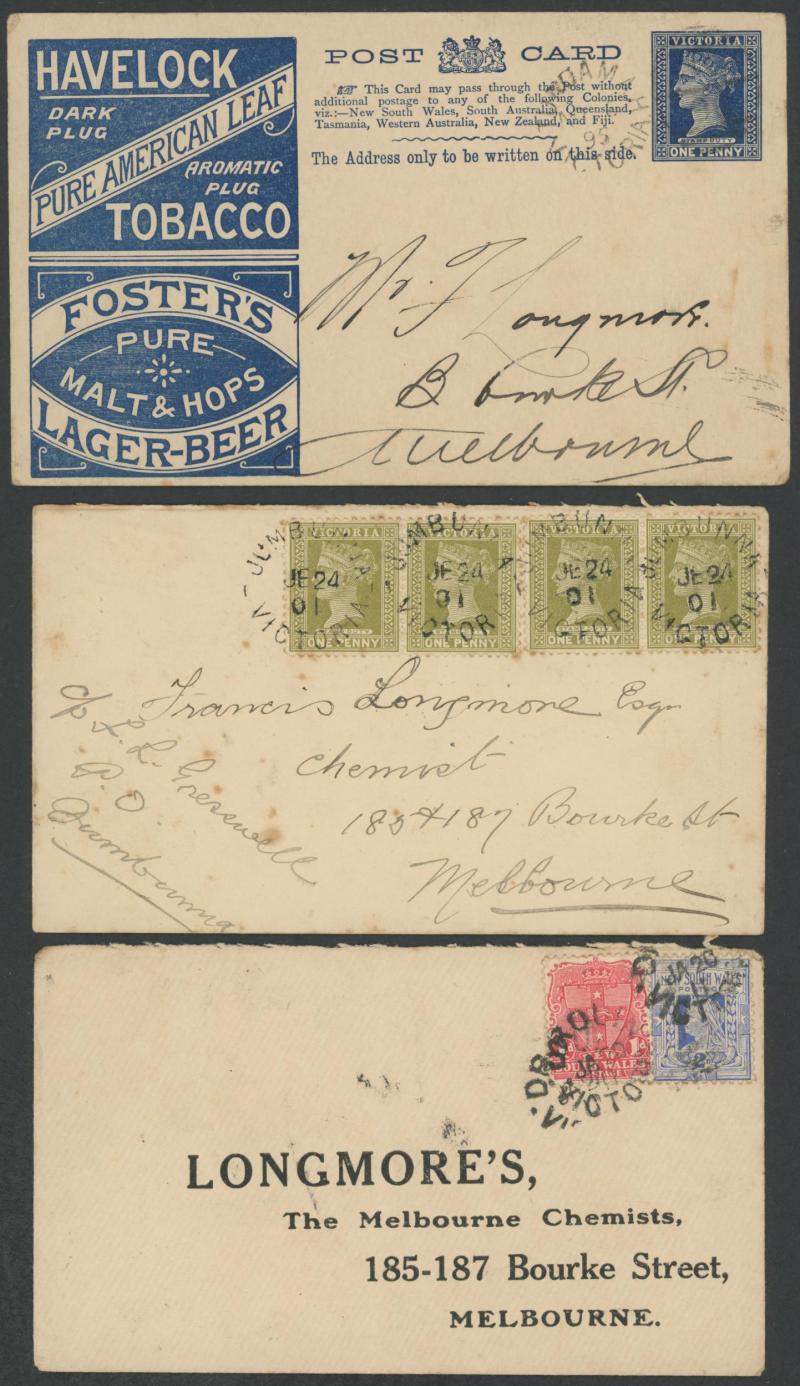 HAVELOCK
DARK
PLUG
PURE AMERICAN LEAF
AROMATIC
PLUG
TOBACCO
FOSTER'S
PURE
MALT & HOPS
LAGER-BEER
POST CARD
This Card may pass through the Post without
additional postage to any of the following Colonies,
viz.:—New South Wales, South Australia, Queensland,
Tasmania, Western Australia, New Zealand, and Fiji.
The Address only to be written on this side.
95
VICTORIA
STAMP DUTY
ONE PENNY
Mr. F Longmore.
Bourke St.
Melbourne
JUMBUNNA
JE 24
01
VICTORIA
JUMBUNNA
JE 24
01
VICTORIA
JUMBUNNA
JE 24
01
VICTORIA
JUMBUNNA
JE 24
01
VICTORIA
VICTORIA
ONE PENNY
ONE PENNY
ONE PENNY
ONE PENNY
Francis Longmore Esq
Chemist
185 & 187 Bourke St
Melbourne
c/o
L. Gresswell
P.O.
Jumbunna
1d
SOUTH WALES
POSTAGE
NEW SOUTH WALES
JA 20
VICTO
LONGMORE'S,
The Melbourne Chemists,
185-187 Bourke Street,
MELBOURNE.